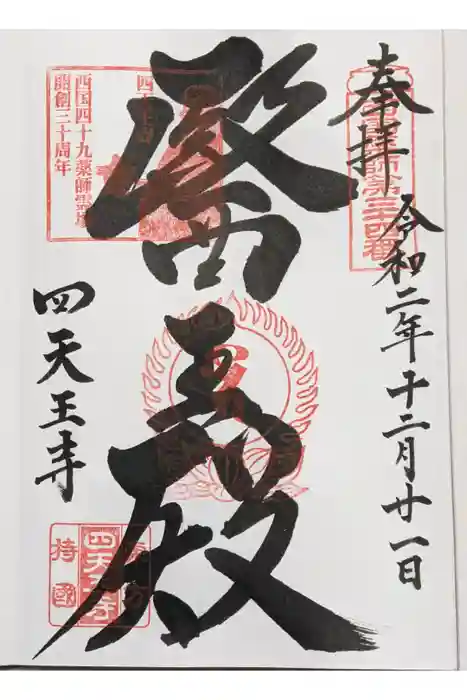 奉拝
西国薬師第三十四番
令和二年十二月廿一日
醫王殿
西国四十九薬師霊場
開創三十周年
四天王寺
四天王寺
持國